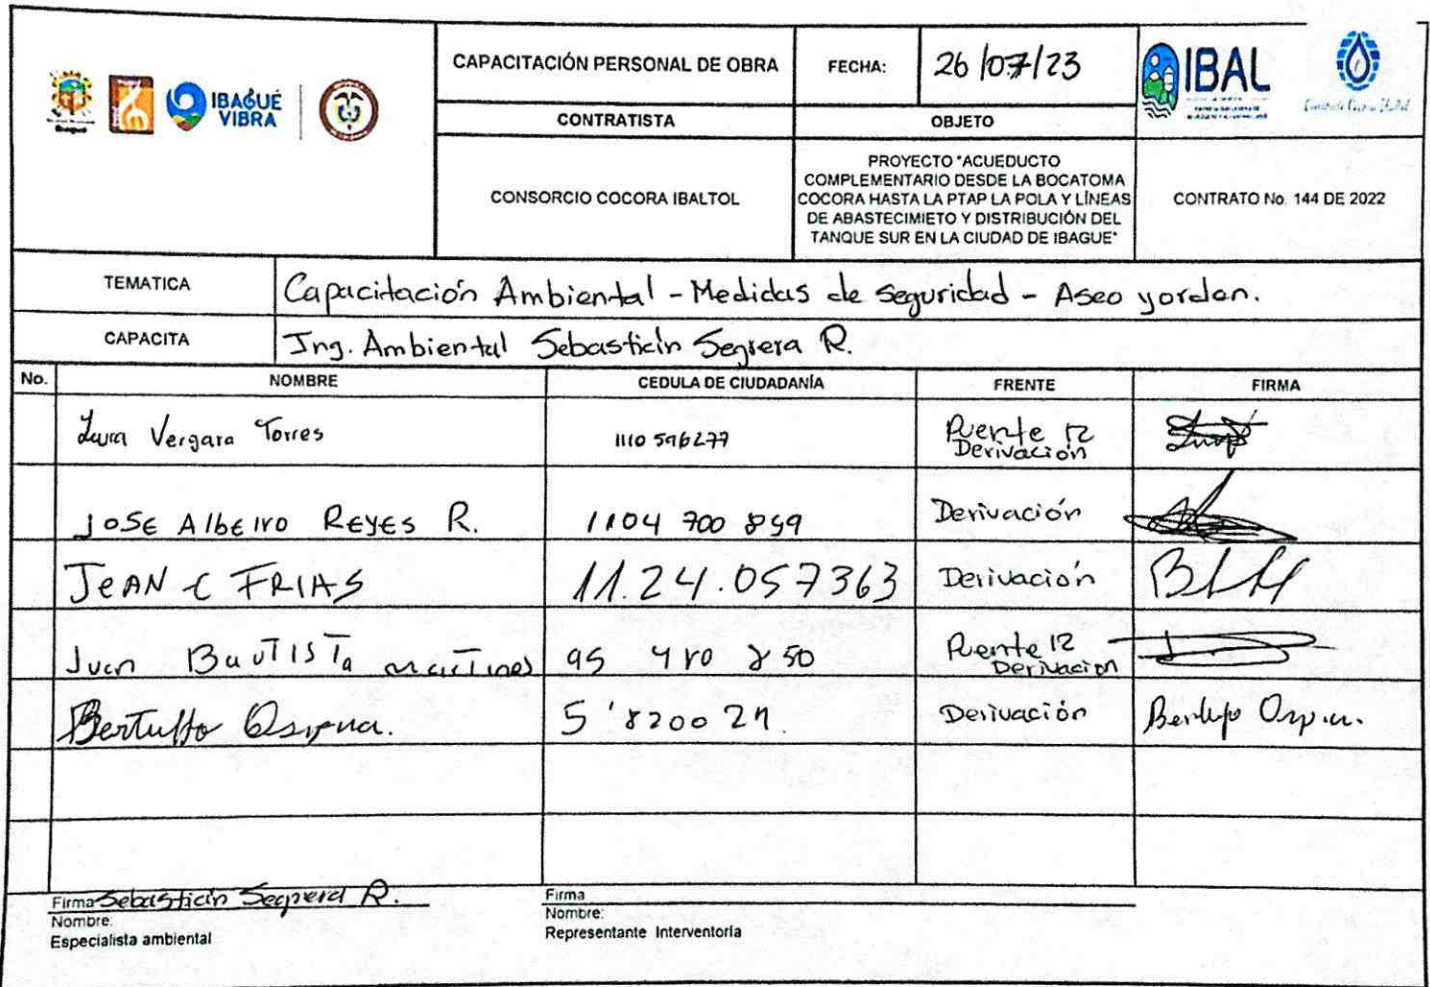 IBAGUÉ
VIBRA
Ibagué
CAPACITACIÓN PERSONAL DE OBRA
FECHA:
26/07/23
IBAL
CONTRATISTA
OBJETO
CONSORCIO COCORA IBALTOL
PROYECTO "ACUEDUCTO
COMPLEMENTARIO DESDE LA BOCATOMA
COCORA HASTA LA PTAP LA POLA Y LÍNEAS
DE ABASTECIMIETO Y DISTRIBUCIÓN DEL
TANQUE SUR EN LA CIUDAD DE IBAGUE"
CONTRATO No. 144 DE 2022
TEMATICA
Capacitación Ambiental - Medidas de seguridad - Aseo y orden.
CAPACITA
Ing. Ambiental Sebastián Segrera R.
No. NOMBRE CEDULA DE CIUDADANÍA FRENTE FIRMA
Vergara Torres 1110 596277 Puente 12
Derivación
JOSE AlbEIrO REyEs R. 1104 700 859 Derivación
JEAN C FRIAS 11.24.057363 Derivación
Juan BauTISTa marTines 95 410 850 Puente 12
Derivacion
Bertulfo Ospina. 5'820027. Derivación Bertulfo Ospina.
Firma Sebastián Segrera R.
Nombre.
Especialista ambiental
Firma
Nombre:
Representante Interventoría